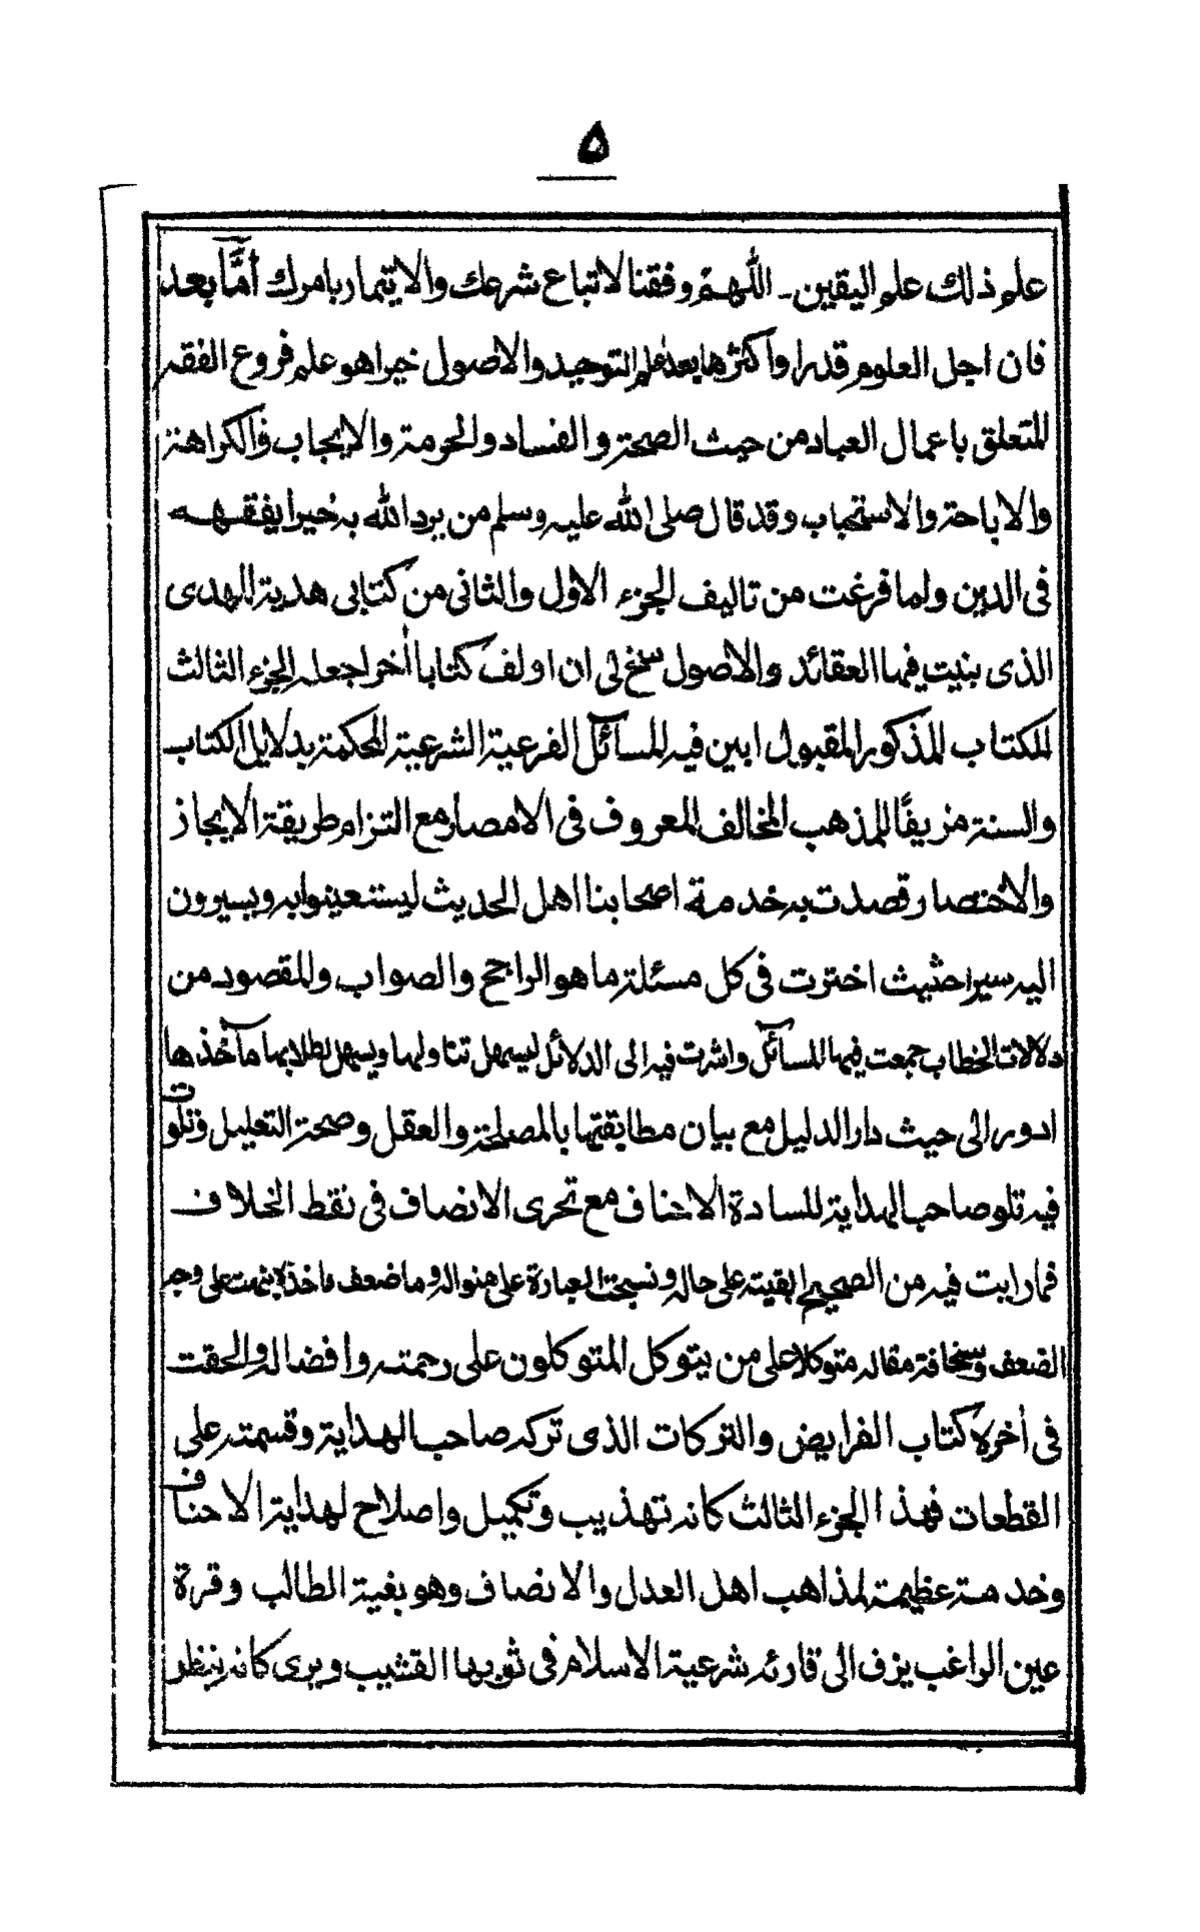 ۵
علم ذلك علم اليقين۔ اللّهمّ وفقنا لاتباع شرعك والايتمار بامرك أمّا بعد
فان اجل العلوم قدرا واكثرها بعد علم التوحيد والاصول خيرا هو علم فروع الفقه
المتعلق باعمال العباد من حيث الصحة والفساد والحرمة والايجاب والكراهة
والاباحة والاستحباب وقد قال صلى الله عليه وسلم من يرد الله به خيرا يفقهه
فى الدين ولما فرغت من تاليف الجزء الاول والثانى من كتابى هدية المهدى
الذى بنيت فيهما العقائد والاصول سنح لى ان اولف كتابا أخر اجعله الجزء الثالث
للكتاب المذكور المقبول ابين فيه المسائل الفرعية الشرعية المحكمة بدلايل الكتاب
والسنة مزيفًا للمذهب المخالف المعروف فى الامصار مع التزام طريقة الايجاز
والاختصار قصدت به خدمة اصحابنا اهل الحديث ليستعينوا به ويسيرون
اليه سيرا حثيث اخترت فى كل مسئلة ما هو الراجح والصواب والمقصود من
دلالات الخطاب جمعت فيها المسائل واشرت فيه الى الدلائل ليسهل تناولها ويسهل لطلابها مآخذها
ادور الى حيث دار الدليل مع بيان مطابقتها بالمصلحة والعقل وصحة التعليل وتلوت
فيه تلو صاحب الهداية للسادة الاحناف مع تحرى الانصاف فى نقط الخلاف
فما رايت فيه من الصحيح ابقيته على حاله ونسجت العبارة على منواله وما ضعف ماخذه نبهت على وجه
الضعف وسخافة مقاله متوكلا على من يتوكل المتوكلون على رحمته وافضاله والحقت
فى أخره كتاب الفرايض والتركات الذى تركه صاحب الهداية وقسمته على
القطعات فهذا الجزء الثالث كانه تهذيب وتكميل واصلاح لهداية الاحناف
وخدمة عظيمة لمذاهب اهل العدل والانصاف وهو بغية الطالب وقرة
عين الراغب يزف الى قارئه شرعية الاسلام فى ثوبها القشيب ويرى كانه ينظر